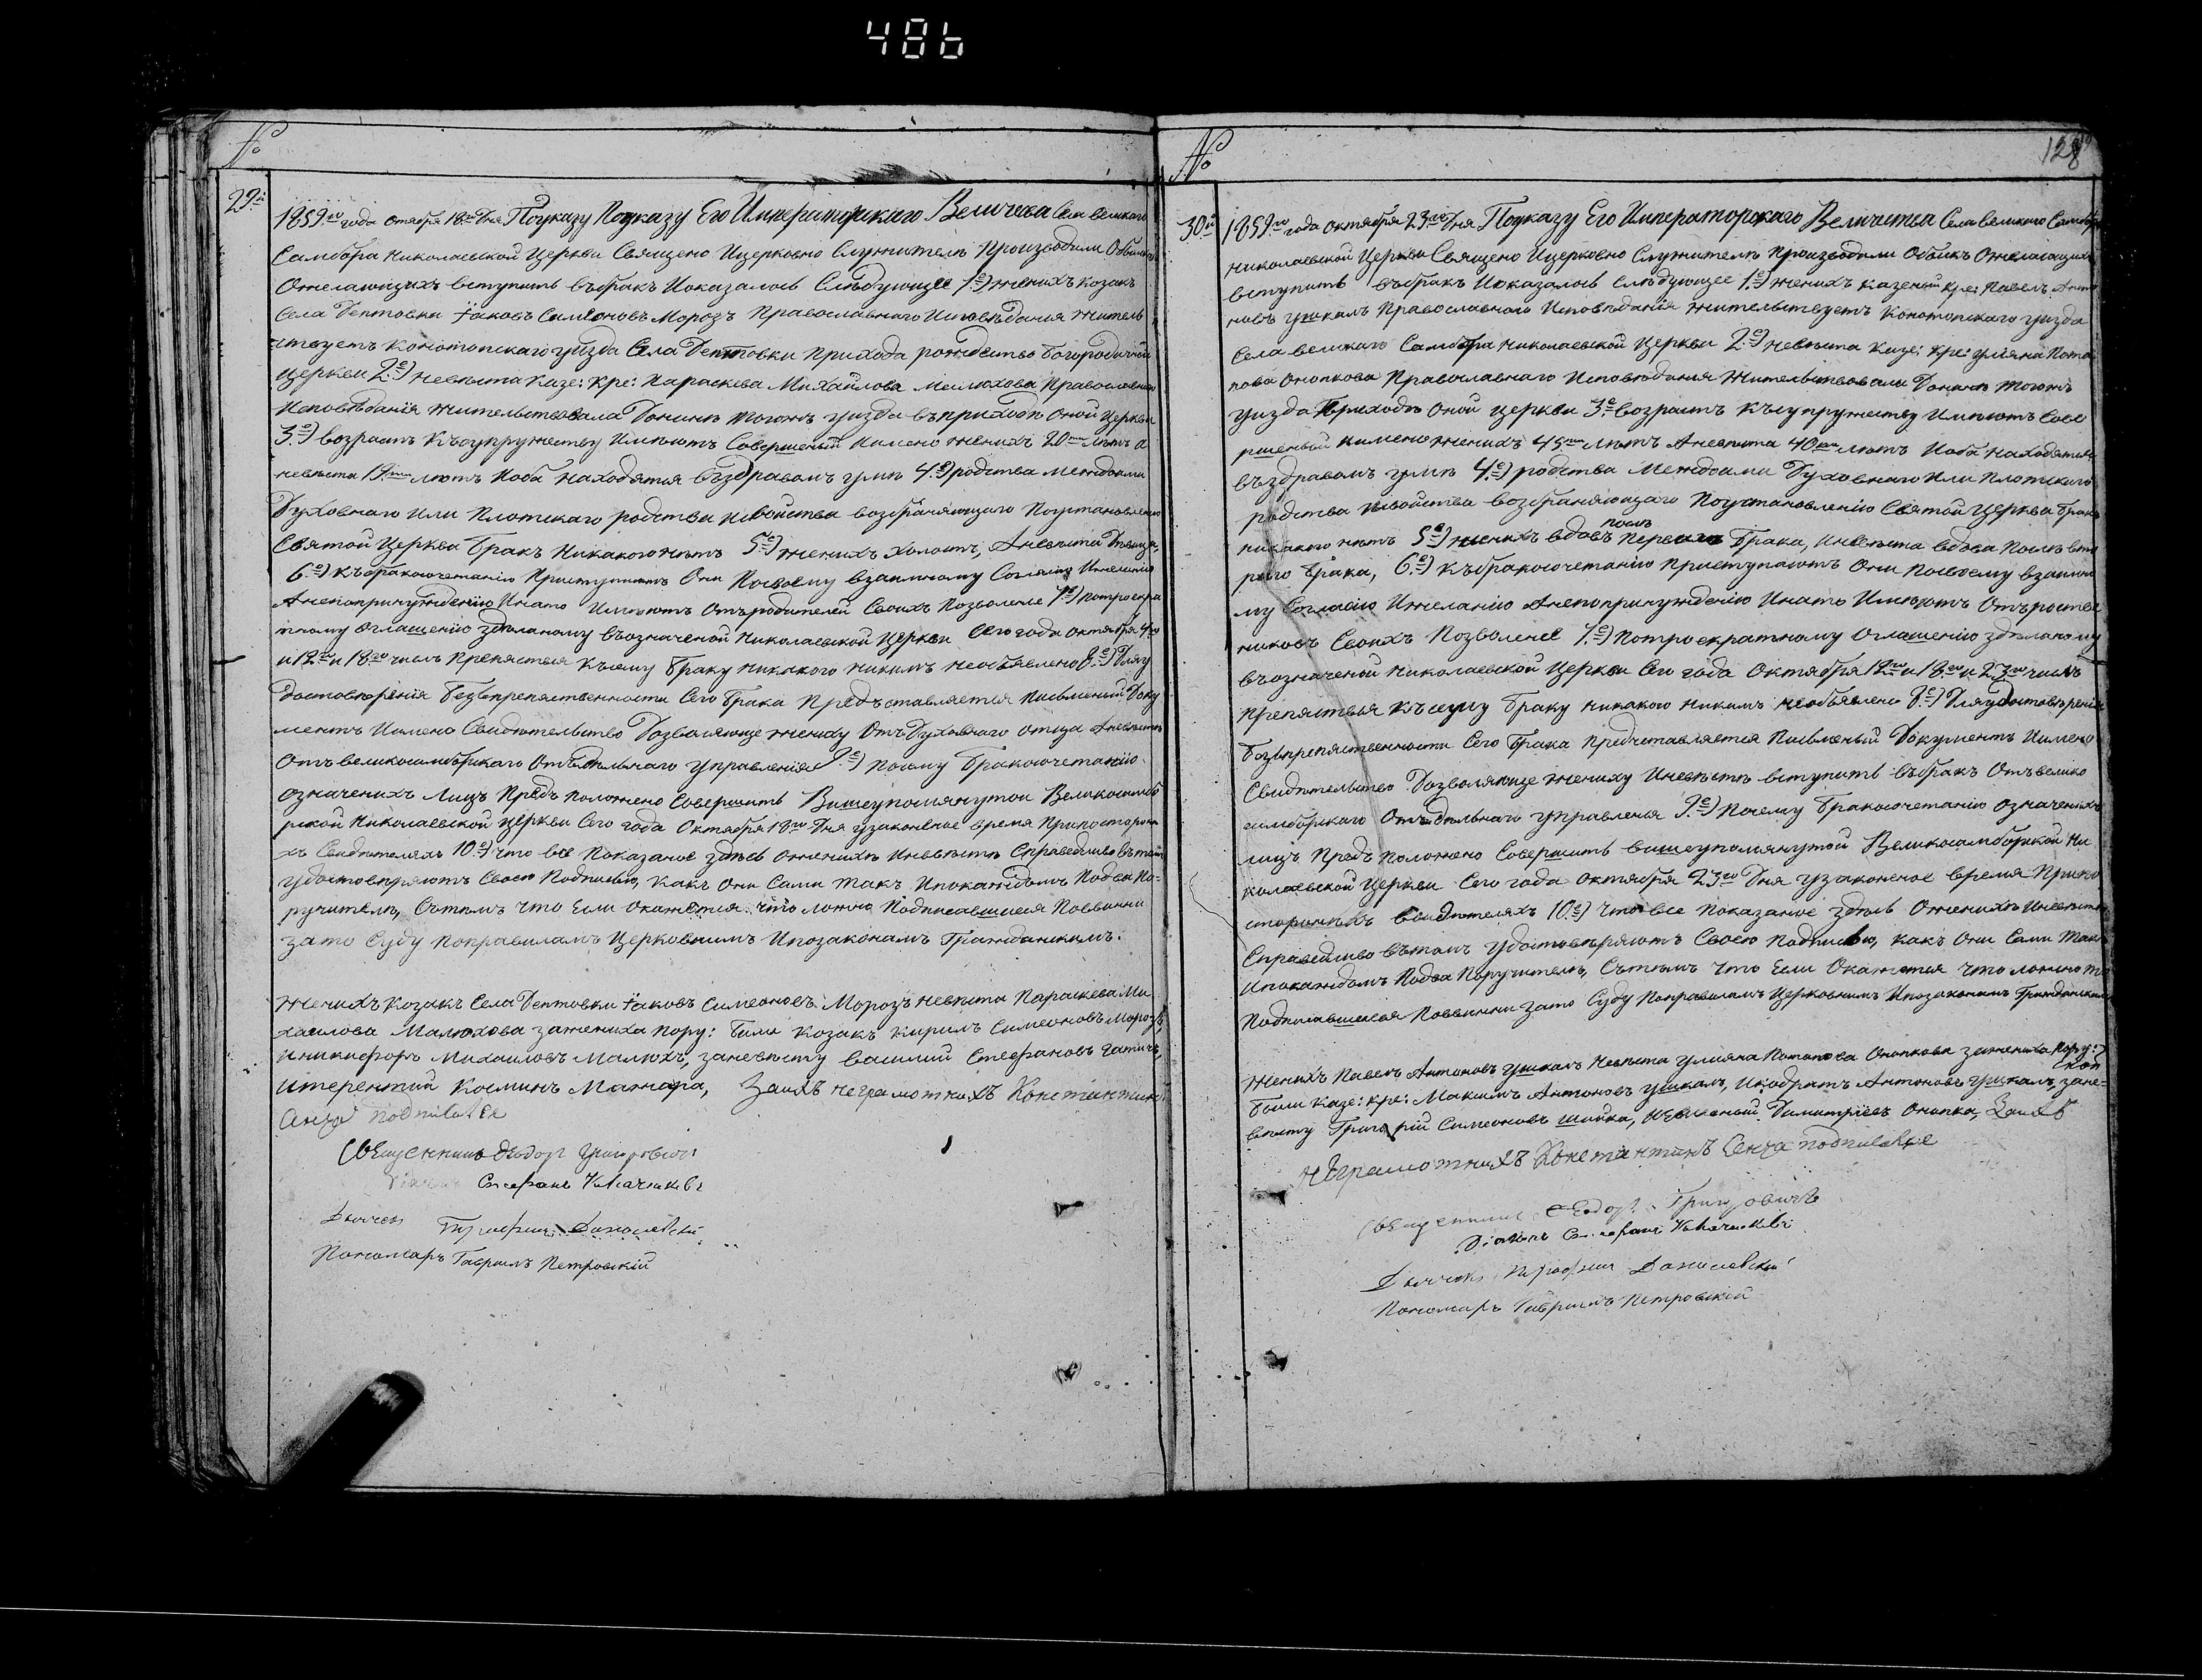 486
№
29й
1859го года Октября 18го дня Поуказу Поуказу Его Императорскаго Величева Села Великого
Самбора Николаевской Церкви Священо Ицерковно Служители Производили Обыски
Ожелающихъ вступить въбракъ Иоказалось Слѣдующее 1.е) женихъ козакъ
Села Дептовки Іаковъ Симеоновъ Морозъ Православнаго Исповѣдания житель
ствуетъ Конотопскаго уизда Села Дептовки Прихода рождество Богородичной
Церкви 2.е) невѣста Казе: Кре: Параскева Михайлова Малюхова Православнаго
Исповѣданія жительствовала Донинѣ тогожъ уизда въприходѣ Оной Церкви
3.е) возрастъ Късупружеству Имѣютъ Совершеный Имено женихъ 20 лѣтъ а
невѣста 19 лѣтъ Иоба находятся въздравомъ умѣ 4.е) родства Междоими
Духовнаго или Плотскаго родства исвойства возбраняющаго Поустановлению
Святой Церкви Бракъ Никакого нѣтъ 5.е) женихъ холостъ, Аневѣста Дѣвица,
6.е) Къбракосочетанію Приступаютъ Они Посвоему взаимному Согласию Ижеланию
Анепопринуждению Инато Имѣютъ Отъродителей Своихъ Позволение 7.е) Потроекра
тному Оглашению здѣланому въозначеной Николаевской Церкви Сего года Октября 4го
и 12го и 18го числъ Препяствия Късему Браку никакого никимъ необъявлено 8.е) Дляу
достовѣрения Безвпрепяственности Сего Брака Предъставляется Письменый Доку
ментъ Иимено Свидѣтельство Дозволяюще жениху Отъ Духовнаго отца Аневѣсте
Отъ великосамборскаго Отъдѣльнаго Управления 9.е) Посему Бракосочетанию
означенихъ Лицъ Предъ положено Совершить Вишеупомянутои Великосамбо
рской Николаевской Церкви Сего года Октября 18го дня узаконеное время Припосторон
хъ Свидѣтеляхъ 10.е) что все Показаное здѣсь Оженихѣ Иневѣсте Справедливо вътомъ
Удостовѣряютъ Своею Подписью, Какъ Они Сами такъ Ипокаждомъ Подва По-
ручителя, Сътѣмъ что Если Окажется что ложно Подписавшиеся Повинни
зато Суду Поправиламъ Церковнимъ Ипозаконамъ Гражданскимъ.
Женихъ Козакъ Села Дептовки Іаковъ Симеоновъ Морозъ невѣста Параскева Ми
хаилова Малюхова зажениха Пору: Били Козакъ Кирилъ Симеоновъ Морозъ,
Иникифоръ Михаиловъ Малюхъ, заневѣсту Василий Стефановъ Гатичъ,
Итерентий Косминъ Мажара, Заихъ неграмотнихъ Константинъ
Сенча подписался
Священникъ Феодоръ Григоровичъ
Діаконъ Стефанъ
Дьячекъ Трофимъ Данилевскій
Пономарь Гавриилъ Петровскій
№
128
30й
1859го года Октября 23го дня Поуказу Его Императорскаго Величества Села Великого Самбора
Николаевской Церкви Священо Ицерковно Служители Производили Обыскъ Ожелающихъ
вступить въбракъ Иоказалось Слѣдующее 1.е) женихъ казеный кре: Павелъ Анто
новъ Ушкалъ Православнаго Исповѣдания жительствуетъ Конотопскаго уизда
Села Великаго Самбора Николаевской Церкви 2.е) невѣста Казе: Кре: Улияна Пота
пова Онопкова Православнаго Исповѣдания жительствовала Донинѣ тогожъ
уизда Приходѣ Оной Церкви 3.е возрастъ Късупружеству Имѣютъ Сове
ршеный Иимено женихъ 45 лѣтъ Аневѣста 40 лѣтъ Иоба находятся
въздравомъ умѣ 4.е) родства Междоими Духовнаго Или Плотскаго
родства исвойства возбраняющаго Поустановлению Святой Церкви Бракъ
никакого нѣтъ 5.е) женихъ вдовъ послѣ Перваго Брака, Иневѣста вдова Послѣ вто
раго Брака, 6.е) Къбракосочетанию Приступаютъ Они Посвоему взаимно
му Согласию Ижеланию Анепопринуждению Инато Имѣютъ Отъродстве
никовъ Своихъ Позволение 7.е) Потроекратному Оглашению здѣланому
въозначеной Николаевской Церкви Сего года Октября 12го и 18го и 23го числъ
Препяствия Късему Браку никакого никимъ необъявлено 8.е) Дляудостовѣрения
Безвпрепяственности Сего Брака Предъставляется Письменый Документъ Иимено
Свидѣтельство Дозволяюще жениху Иневѣстѣ вступить въбракъ Отъвелико
самборскаго Отъдѣльнаго управления 9.е) Посему Бракосочетанию означенихъ
лицъ Предъ Положено Совершить вишеупомянутой Великосамборской Ни
колаевской Церкви Сего года Октября 23го дня узаконеное время Припо
сторонихъ Свидѣтеляхъ 10.е) что все Показаное здѣсь Оженихѣ Иневѣстѣ
Справедливо вътомъ Удостовѣряютъ Своею Подписью, какъ Они Сами такъ
Ипокаждомъ Подва Поручителя, Сътѣмъ что Если Окажется что ложно то
Подписавшиеся Повинни зато Суду Поправиламъ Церковнимъ Ипозаконамъ Гражданскимъ
Женихъ Павелъ Антоновъ Ушкалъ Невѣста Улияна Потапова Онопкова зажениха Пору:
Били Казе: кре: Максимъ Антоновъ Ушкалъ, Икодратъ Антоновъ Ушкалъ, зане-
вѣсту Григорий Симеоновъ Шийка, Димитриевъ Онопка, Заихъ
неграмотнихъ Константинъ Сенча подписался
Священникъ Феодоръ Григоровичъ
Діаконъ Стефанъ
Дьячекъ Трофимъ Данилевскій
Пономарь Гавриилъ Петровскій